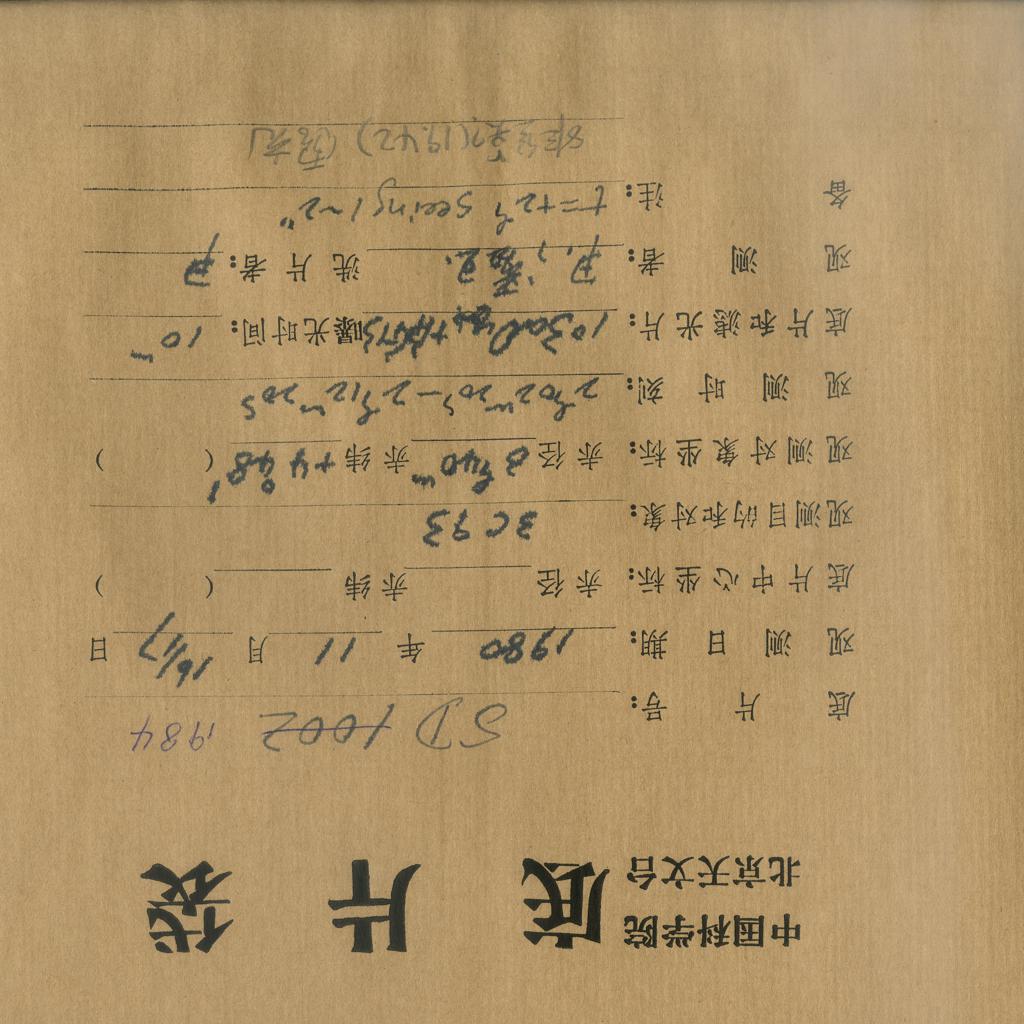 中国科学院
北京天文台
底 片 袋
底片号: SD 1002 1984
观测日期: 1980 年 11 月 16/17 日
底片中心坐标: 赤径 赤纬 ( )
观测目的和对象: 3C 93
观测对象坐标: 赤径 3h40m 赤纬 +4°48′ ( )
观测时刻: 2h02m20s—2h12m20s
底片和滤光片: 103aD 曝光时间: 10m
观测者: 洗片者:
备注: t=+2h seeing 1~2″
(19.42)